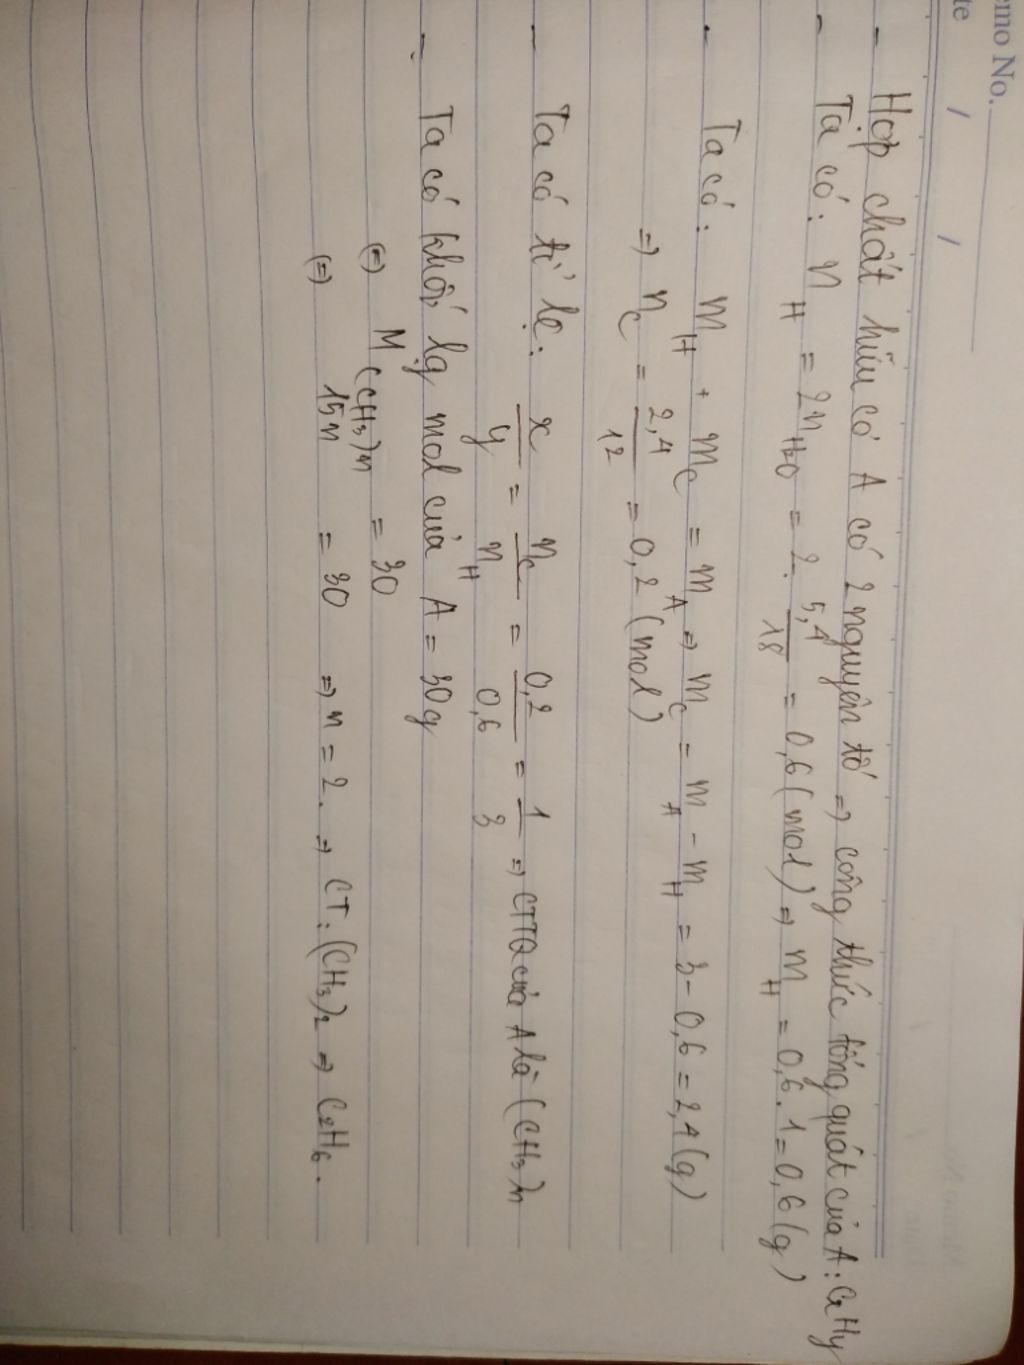 emo No.
te / /
- Hợp chất hữu cơ A có 2 nguyên tố => công thức tổng quát của A: CxHy
- Ta có: nH = 2nH2O = 2. 5,4/18 = 0,6 (mol) => mH = 0,6. 1 = 0,6 (g)
- Ta có: mH + mC = mA => mC = mA - mH = 3 - 0,6 = 2,4 (g)
=> nC = 2,4/12 = 0,2 (mol)
- Ta có tỉ lệ: x/y = nC/nH = 0,2/0,6 = 1/3 => CTTQ của A là (CH3)n
- Ta có khối lg mol của A = 30g
(=) M(CH3)n = 30
(=) 15n = 30 => n = 2. => CT: (CH3)2 => C2H6.